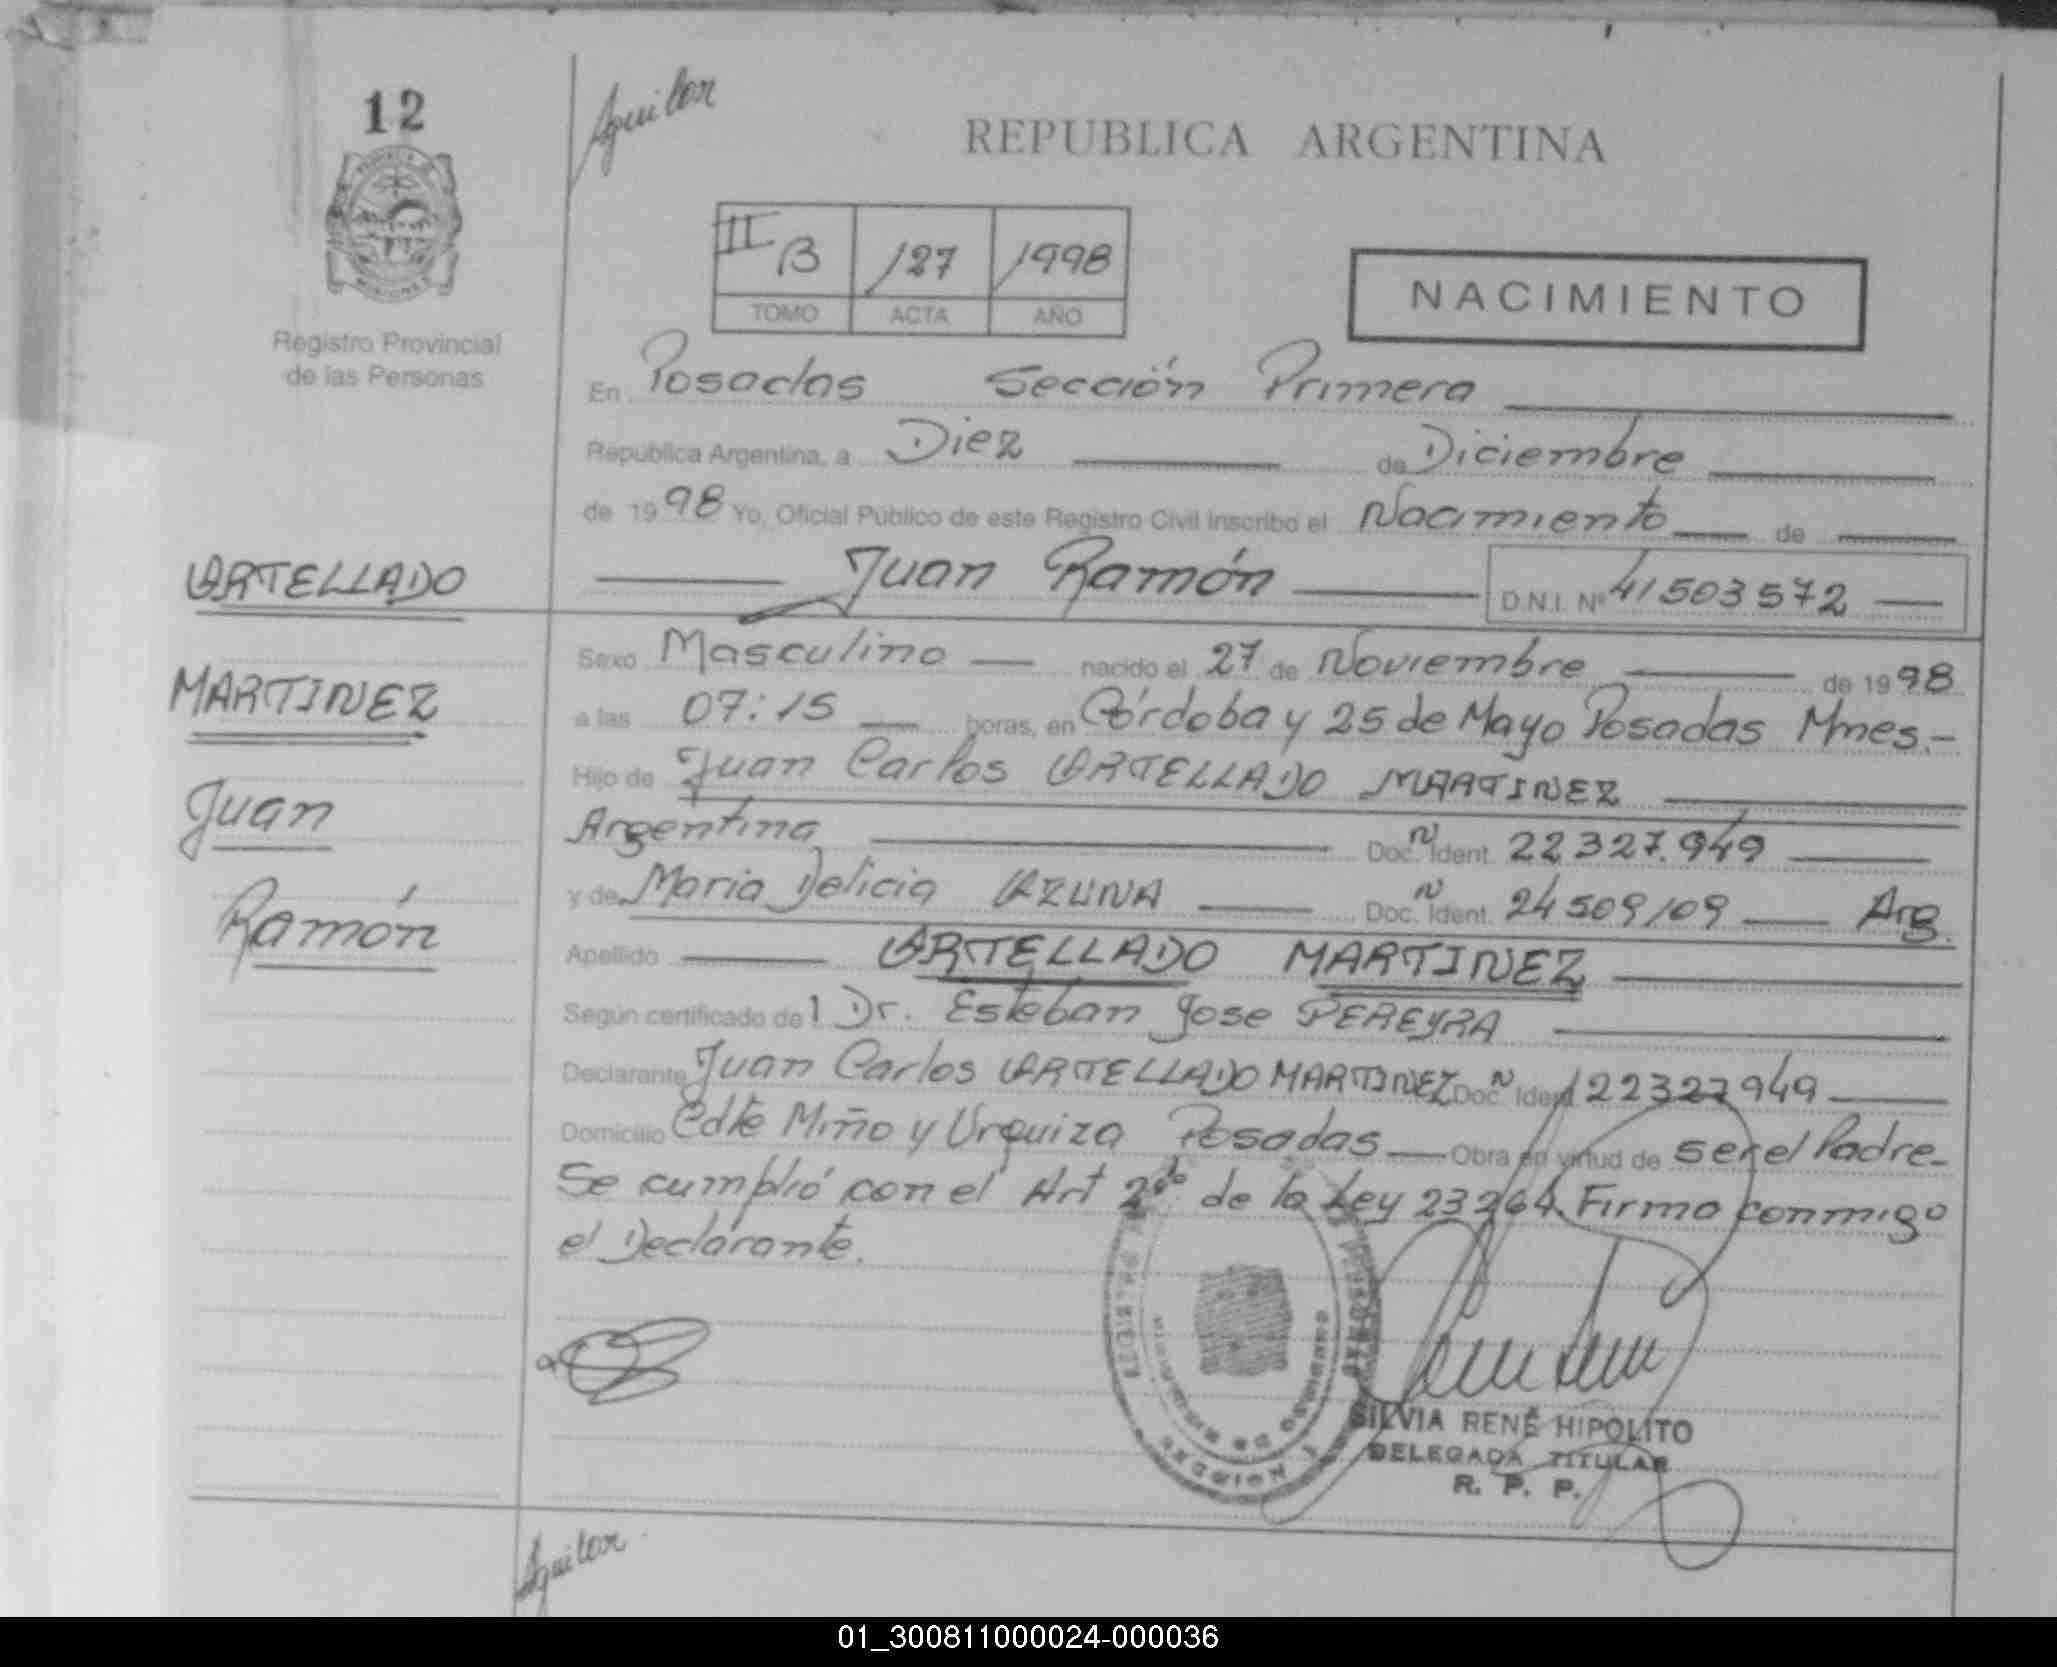 12
Aguilar
REPUBLICA ARGENTINA
III B 127 1998
TOMO ACTA AÑO
NACIMIENTO
Registro Provincial
de las Personas
En Posadas Sección Primera
República Argentina, a Diez de Diciembre
de 1998 Yo, Oficial Público de este Registro Civil inscribo el Nacimiento de
Juan Ramón D.N.I. Nº 41503572
ARTELLADO
MARTINEZ
Juan
Ramón
Sexo Masculino nacido el 27 de Noviembre de 1998
a las 07:15 horas, en Córdoba y 25 de Mayo Posadas Mnes.-
Hijo de Juan Carlos ARTELLADO MARTINEZ
Argentina Doc. Ident. 22327.949
y de Maria Delicia Doc. Ident. 24509109 Arg.
Apellido ARTELLADO MARTINEZ
Según certificado del Dr. Esteban Jose PEREYRA
Declarante Juan Carlos ARTELLADO MARTINEZ Doc. Ident 22327949
Domicilio Cdte Miño y Urquiza Posadas Obra en virtud de ser el Padre-
Se cumplió con el Art 2do de la Ley 23264. Firma conmigo
el Declarante.
SILVIA RENÉ HIPOLITO
DELEGADA TITULAR
R. P. P.
Aguilar
01_300811000024-000036